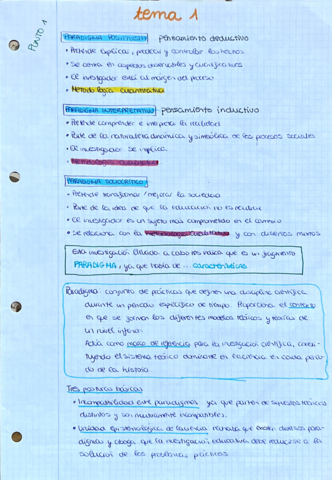 tema 1
PUNTO 1
PARADIGMA POSITIVISTA pensamiento deductivo
• Pretende explicar, predecir y controlar los hechos
• Se centra en aspectos observables y cuantificables
• El investigador está al margen del proceso
• Metodología cuantitativa
PARADIGMA INTERPRETATIVO pensamiento inductivo
• Pretende comprender e interpretar la realidad
• Parte de la naturaleza dinámica y simbólica de los procesos sociales
• El investigador se implica
• Metodología cualitativa
PARADIGMA SOCIOCRÍTICO
• Pretende transformar / mejorar la sociedad
• Parte de la idea de que la educación no es neutral
• El investigador es un sujeto más comprometido en el cambio
• Se relaciona con la y con diseños mixtos
Esta investigación llevada a cabo nos indica que es un fragmento
PARADIGMA, ya que habla de características
Paradigma: conjunto de prácticas que definen una disciplina científica
durante un periodo específico de tiempo. Proporciona el contexto
en que se forman los diferentes modelos teóricos y teorías de
un nivel inferior.
Actúa como marco de referencia para la investigación científica,
el sistema teórico dominante en la ciencia en cada
de la historia
Tres posturas básicas
• Incompatibilidad entre paradigmas ya que parten de supuestos teóricos
distintos y son mutuamente incompatibles.
• Unidad epistemológica de la ciencia rechaza que existan diversos
y aboga que la investigación educativa debe reducirse a la
solución de los problemas prácticos